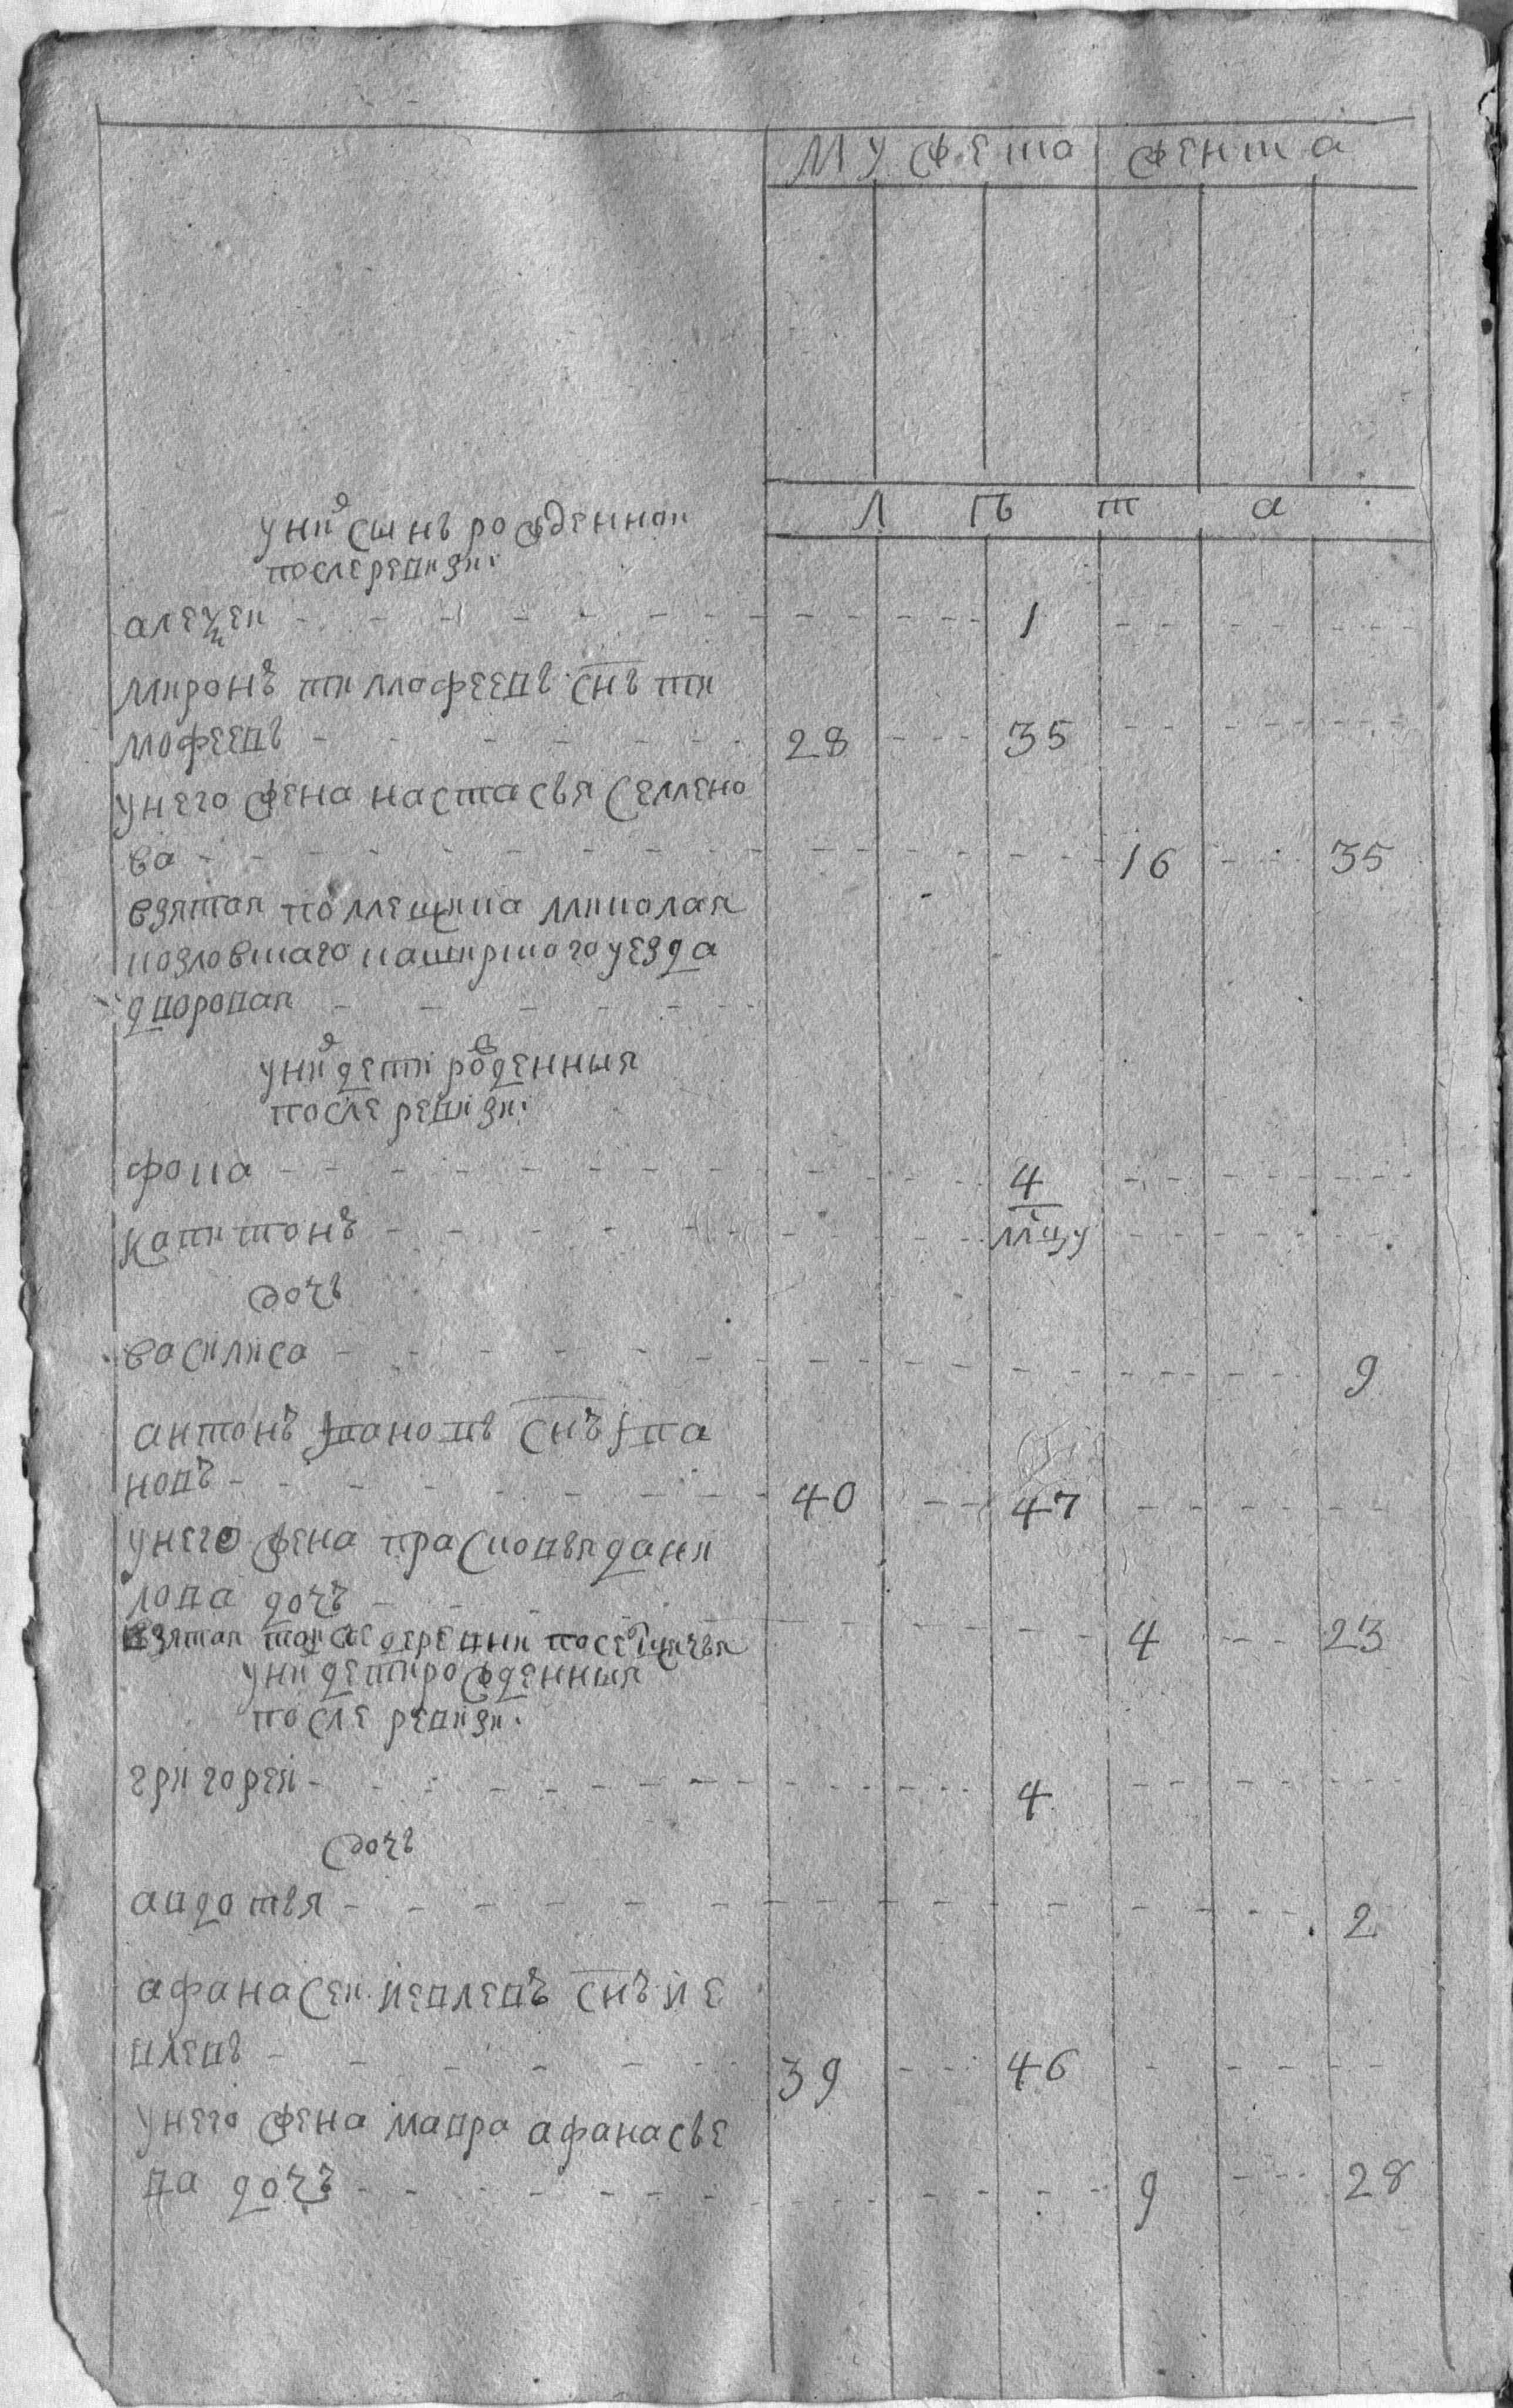 мужеска женска
Л Ѣ т а
у них сынъ рожденнои
после ревизи:
алексеи 1
миронъ тимофеевъ снъ ти
мофеевъ 28 35
у него жена настасья семено
ва 16 35
взятая помещика миколая
козловскаго каширского уезда
дворовая
у них дети рожденныя
после ревизи:
фока 4
капитонъ мцу
дочь
василиса 9
антонъ пановъ снъ па
новъ 40 47
у него жена прасковья дани
лова дочь
взятая тои же деревни 4 23
у них дети рожденныя
после ревизи:
григореи 4
дочь
авдотья 2
афанасеи иевлевъ снъ ие
влевъ 39 46
у него жена мавра афанасье
ва дочь 9 28